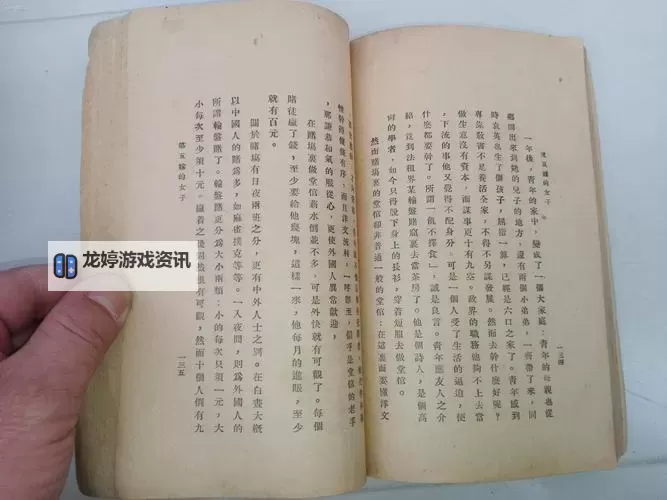 一年後，青年的家中，變成了一個大家庭：青年的母親也從
鄉間出來到她的兒子的地方，還有兩個小弟弟，一齊帶了來，同
時袁英也生了個孩子，屈指一算，已經是六口之家了。青年感到
專靠教書不足養活全家，不得不另謀發展。然而去幹什麼好呢？
做生意沒有資本，而謀事更十有九空。政界的職務他夠不上去當
，下流的事他又覺得不配身分。可是一個人受了生活的逼迫，便
什麼都要幹了。所謂「一飢不擇食」，誠是良言。青年應友人之介
紹，找到法租界某輪盤賭窟裏去當茶房了。他是個詩人，是個高
尚的學者，如今只得脫下身上的長衫，穿着短服去做堂倌。
然而賭窟裏的堂倌却非普通一般的堂倌：在這裏面要懂洋文
一三四
第五緣的女子
，那謙恭和氣的服從心，更使外國人異常歡迎，
在賭塲裏做堂倌薪水倒並不多，可是外快就有可觀了。每個
賭徒贏了錢，至少要給他幾塊，這樣一來，他每月的進賬，至少
就有百元。
關於賭塲有日夜兩班之分，更有中外人士之別。在白晝大概
以中國人的賭為多，如麻雀撲克等等。一入夜間，則為外國人的
所謂輪盤賭了。輪盤賭更分為大小兩類：小的每次只須一元，大
小每次至少須十元。贏着之後
有可觀，然而十個人倒有九
一三五
龙婷游戏资讯